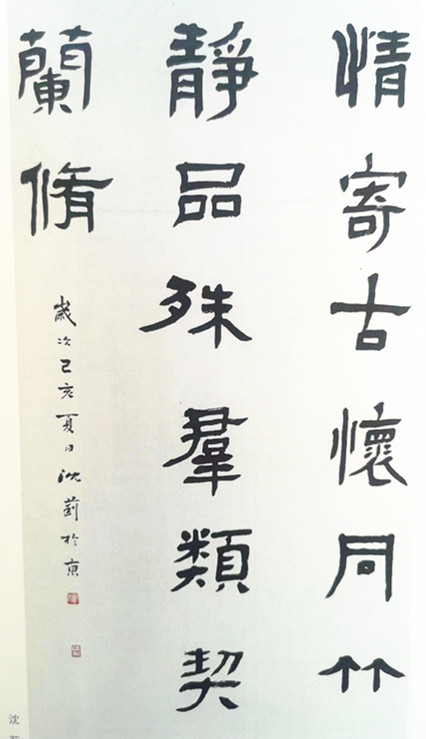 情寄古懷同竹
靜品殊羣類契
蘭脩
歲次己亥夏日沈莿於京
沈